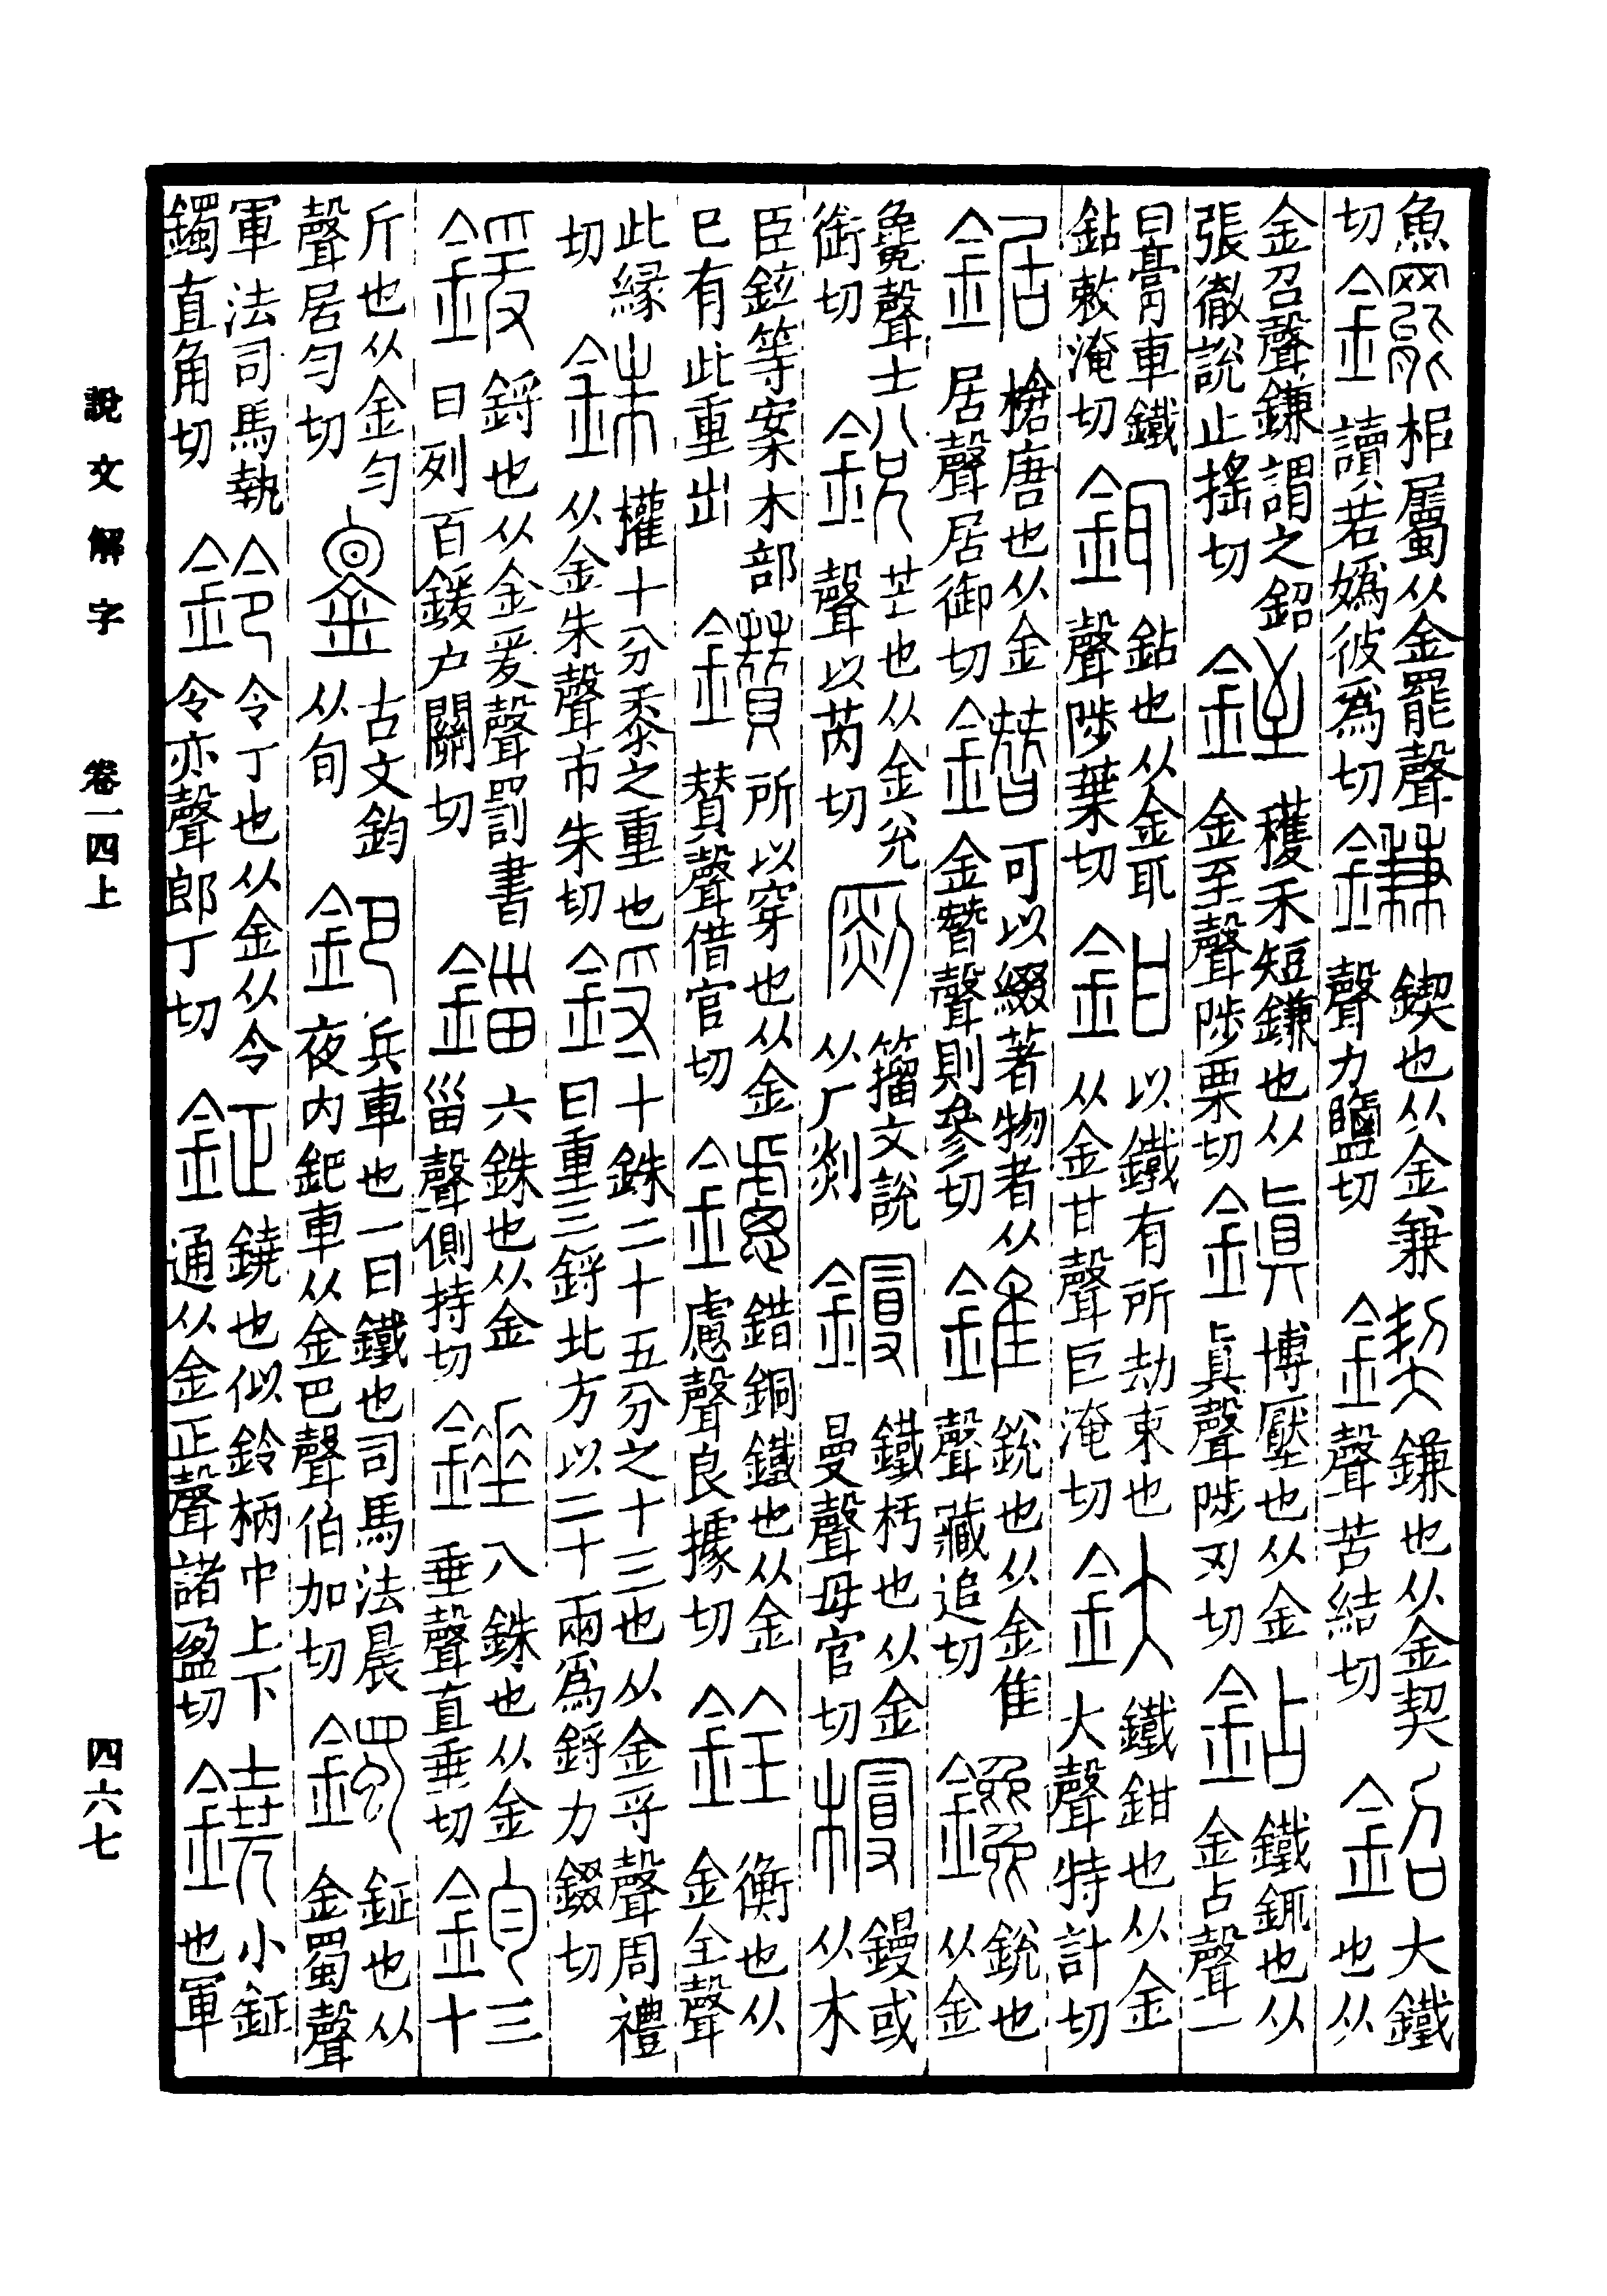 魚切䥯梠屬从金罷聲讀若嬀彼爲切鎌鍥也从金兼聲力鹽切鍥鎌也从金契聲苦結切鉊大鐵也从
金召聲鎌謂之鉊張徹說止搖切銍穫禾短鎌也从金至聲陟栗切鎭博壓也从金眞聲陟刃切鉆鐵銸也从金占聲一
曰膏車鐵鉆敕淹切銸鉆也从金耴聲陟葉切鉗以鐵有所劫束也从金甘聲巨淹切釱鐵鉗也从金大聲特計切
鋸槍唐也从金居聲居御切鐕可以綴著物者从金朁聲則參切錐銳也从金隹聲藏追切鑱銳也从金
毚聲士銜切銳芒也从金兌聲以芮切籀文銳从厂剡鏝鐵杇也从金曼聲母官切槾鏝或从木
臣鉉等案木部巳有此重出鑽所以穿也从金贊聲借官切鑢錯銅鐵也从金慮聲良據切銓衡也从金全聲
此緣切銖權十分黍之重也从金朱聲市朱切鋝十銖二十五分之十三也从金寽聲周禮曰重三鋝北方以二十兩爲鋝力錣切
鍰鋝也从金爰聲罰書曰列百鍰户關切錙六銖也从金甾聲側持切錘八銖也从金垂聲直垂切鈞三十
斤也从金勻聲居勻切銞古文鈞从旬鈀兵車也一曰鐵也司馬法晨夜內鈀車从金巴聲伯加切鐲鉦也从金蜀聲
軍法司馬執鐲直角切鈴令丁也从金从令令亦聲郎丁切鉦鐃也似鈴柄中上下通从金正聲諸盈切鐃小鉦也軍
說文解字 卷一四上 四六七